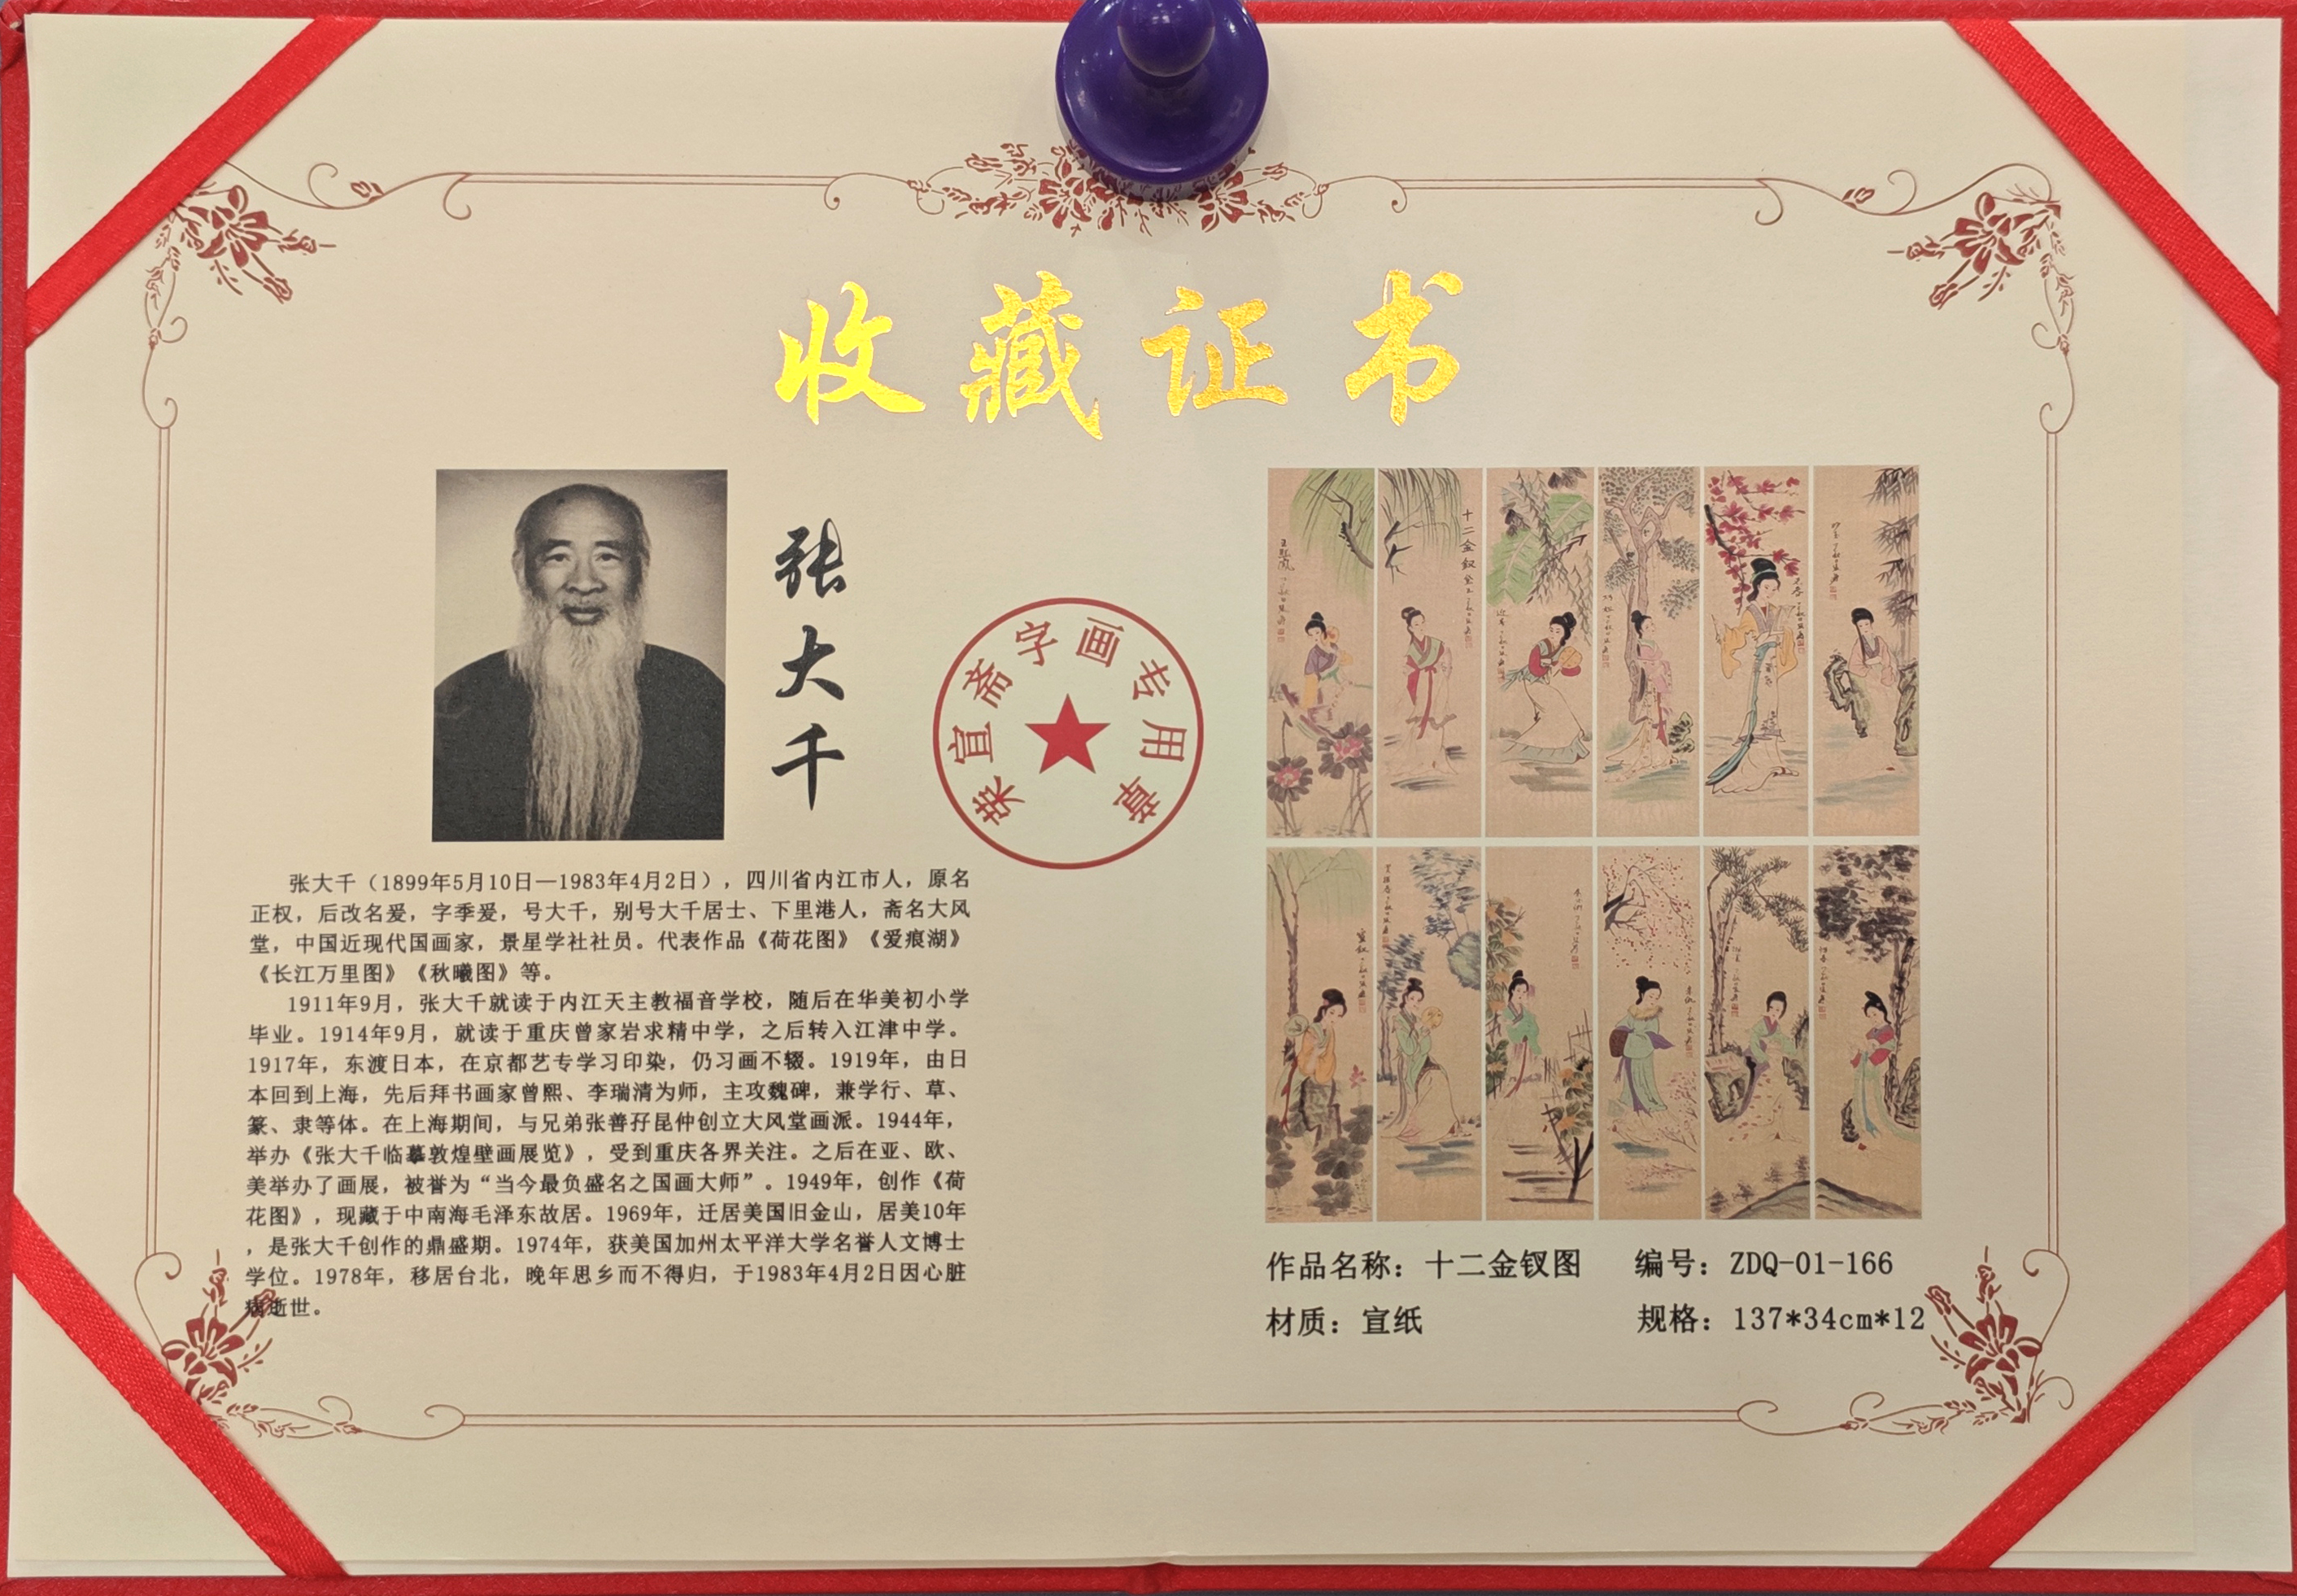 收藏证书
张大千
荣宣斋字画专用章
张大千（1899年5月10日—1983年4月2日），四川省内江市人，原名
正权，后改名爰，字季爰，号大千，别号大千居士、下里港人，斋名大风
堂，中国近现代国画家，景星学社社员。代表作品《荷花图》《爱痕湖》
《长江万里图》《秋曦图》等。
1911年9月，张大千就读于内江天主教福音学校，随后在华美初小学
毕业。1914年9月，就读于重庆曾家岩求精中学，之后转入江津中学。
1917年，东渡日本，在京都艺专学习印染，仍习画不辍。1919年，由日
本回到上海，先后拜书画家曾熙、李瑞清为师，主攻魏碑，兼学行、草、
篆、隶等体。在上海期间，与兄弟张善孖昆仲创立大风堂画派。1944年，
举办《张大千临摹敦煌壁画展览》，受到重庆各界关注。之后在亚、欧、
美举办了画展，被誉为“当今最负盛名之国画大师”。1949年，创作《荷
花图》，现藏于中南海毛泽东故居。1969年，迁居美国旧金山，居美10年
，是张大千创作的鼎盛期。1974年，获美国加州太平洋大学名誉人文博士
学位。1978年，移居台北，晚年思乡而不得归，于1983年4月2日因心脏
病逝世。
十二金钗图
作品名称：十二金钗图 编号：ZDQ-01-166
材质：宣纸 规格：137*34cm*12